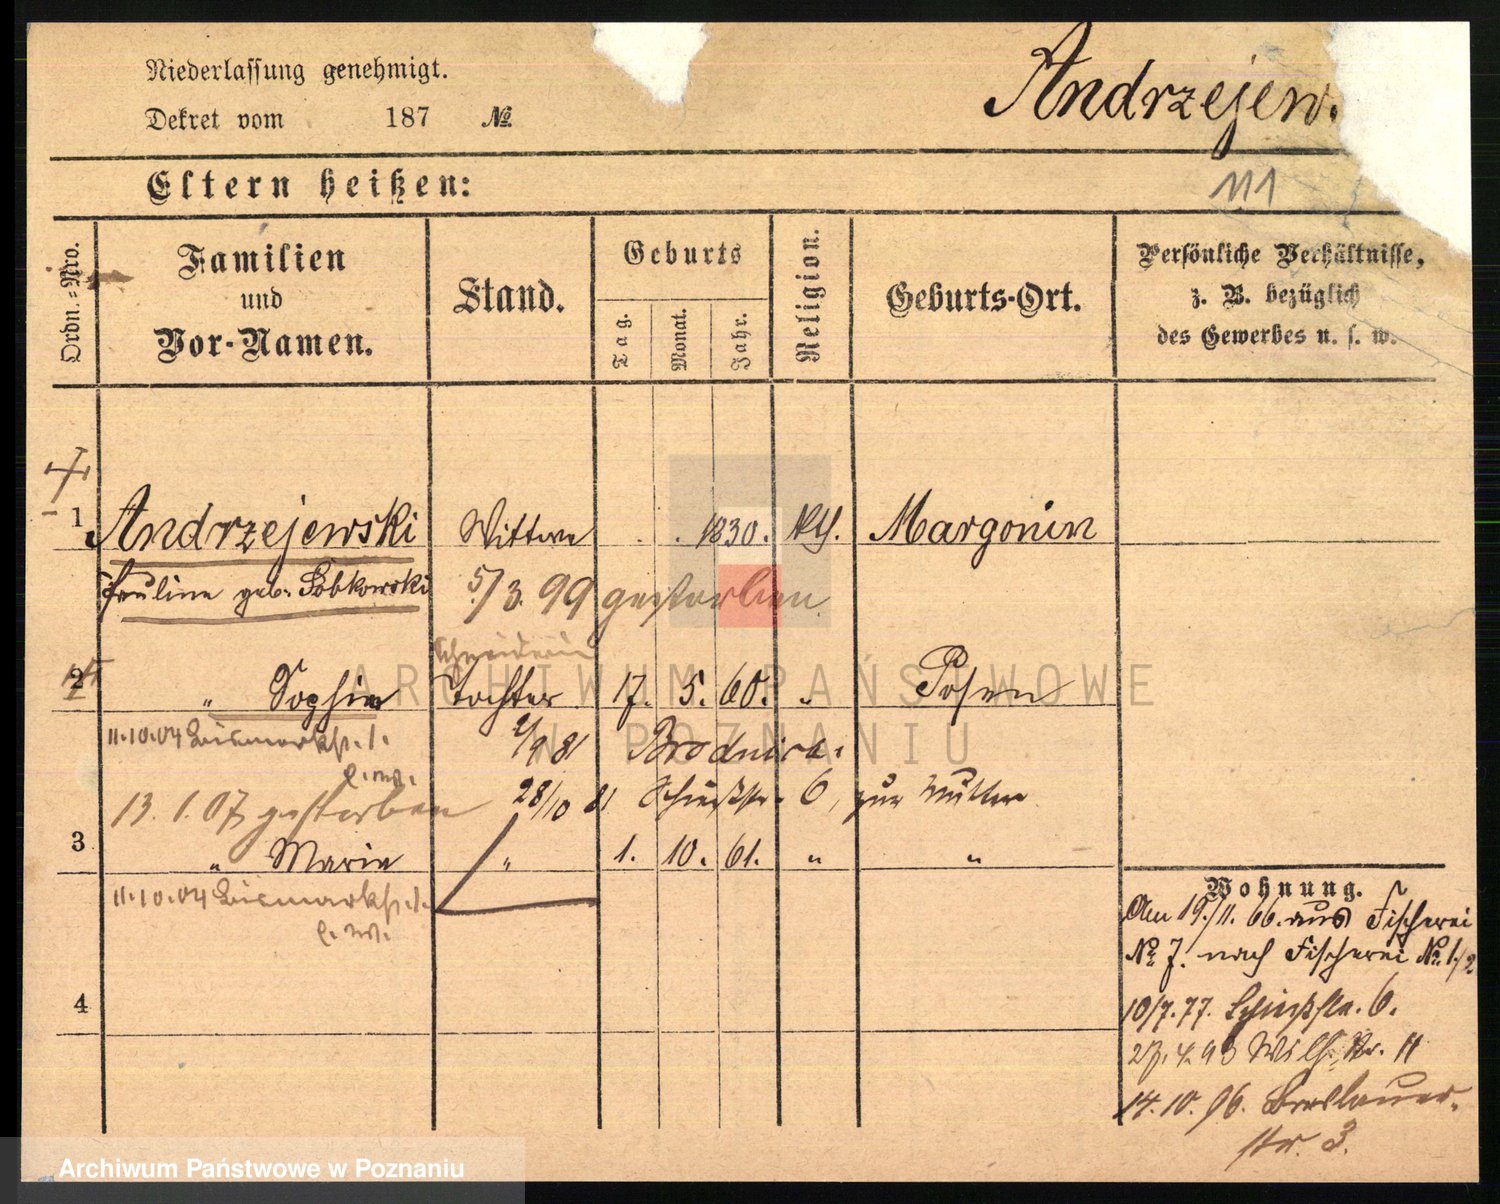 Niederlassung genehmigt.
Andrzejew
Dekret vom 187 №
Eltern heißen:
111
Ordn.-Nro.
Familien
und
Vor-Namen.
Stand.
Geburts
Tag.
Monat.
Jahr.
Religion.
Geburts-Ort.
Persönliche Verhältnisse,
z. B. bezüglich
des Gewerbes u. s. w.
1 Andrzejewski Wittwe 1830. kth. Margonin
Pauline geb. Sobkowski 5/3. 99 gestorben
Schneiderin
2 " Sophie Tochter 17. 5. 60. " Posen
11.10.04 Bismarckst. 1. 2/9 81 Brodnica.
13. 1. 07 gestorben 28/10 81 Schießstr. 6, zur Mutter
3 " Marie " 1. 10. 61. " "
11.10.04 Bismarckst. 1.
4
Wohnung.
Am 19./11. 66. aus Fischerei
№ 7. nach Fischerei № 1/2
10/7. 77. Schießstr. 6.
27. 4. 93 Wilh. Str. 11
14. 10. 96. Breslauer-
str. 3.
ARCHIWUM PAŃSTWOWE
W POZNANIU
Archiwum Państwowe w Poznaniu